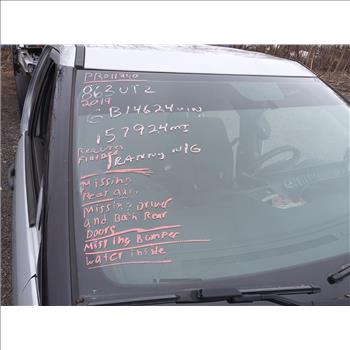 PRO11740
06ZUTZ
2019
GB14624VIN
157924mi
TRANNY N/G
Missing
Rear axle
Missing Driver
and Both Rear
Doors
Missing Bumper
water inside